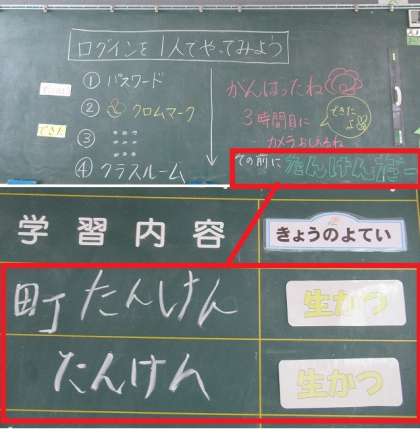 ログインを1人でやってみよう
① パスワード
② クロムマーク
③
④ クラスルーム
できた
がんばったね
3時間目に
できたよ
カメラおしえるね
その前に たんけんだー
学習内容
きょうのよてい
町たんけん
生かつ
たんけん
生かつ